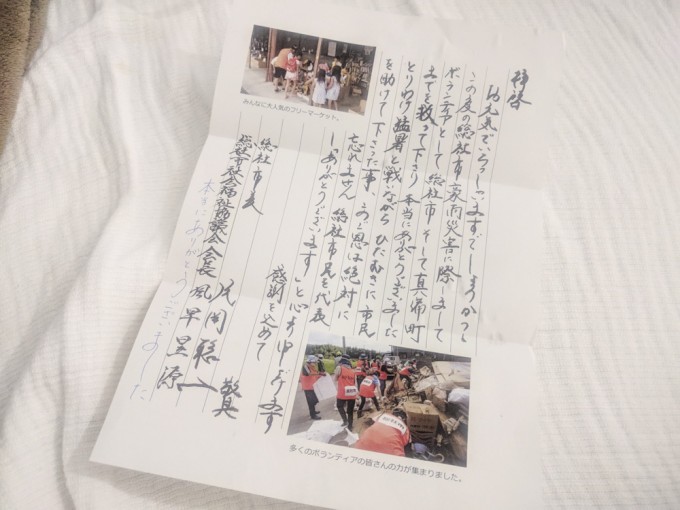 拝啓
お元気でいらっしゃいますでしょうか。
この度の総社市豪雨災害に際しまして
ボランティアとして総社市そして真備町
までを救って下さり本当にありがとうございました
とりわけ猛暑と戦いながらひたむきに市民
を助けて下さった事、このご恩は絶対に
忘れません 総社市民を代表
し「ありがとうございます」と心より申し上げます
感謝を込めて
総社市長 片岡聡一 敬具
総社市社会福祉協議会会長 風早昱源
本当にありがとうございました
みんなに大人気のフリーマーケット。
多くのボランティアの皆さんの力が集まりました。